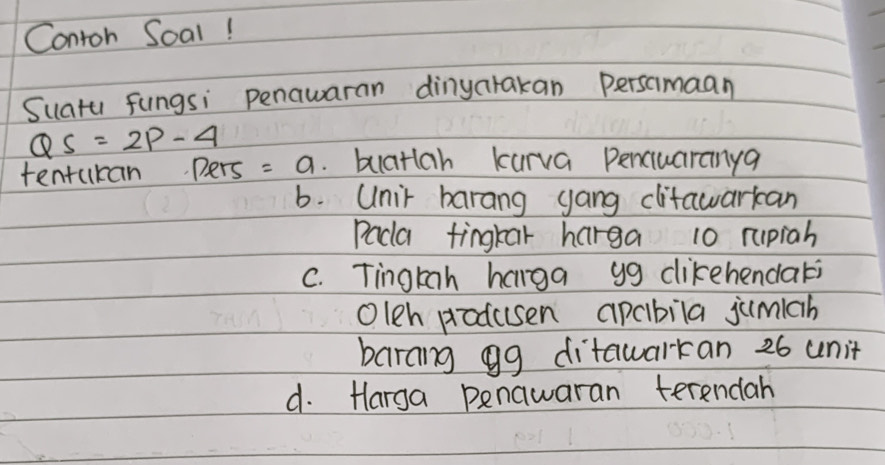 Contoh Soal !
Suatu fungsi penawaran dinyatakan Persamaan
QS = 2P - 4
tentukan Pers = a. buatlah kurva Penawaranya
b. Unit barang yang ditawarkan
Pada tingkat harga 10 rupiah
c. Tingkah harga yg dikehendaki
Oleh produsen apabila jumlah
barang yg ditawarkan 26 unit
d. Harga Penawaran terendah